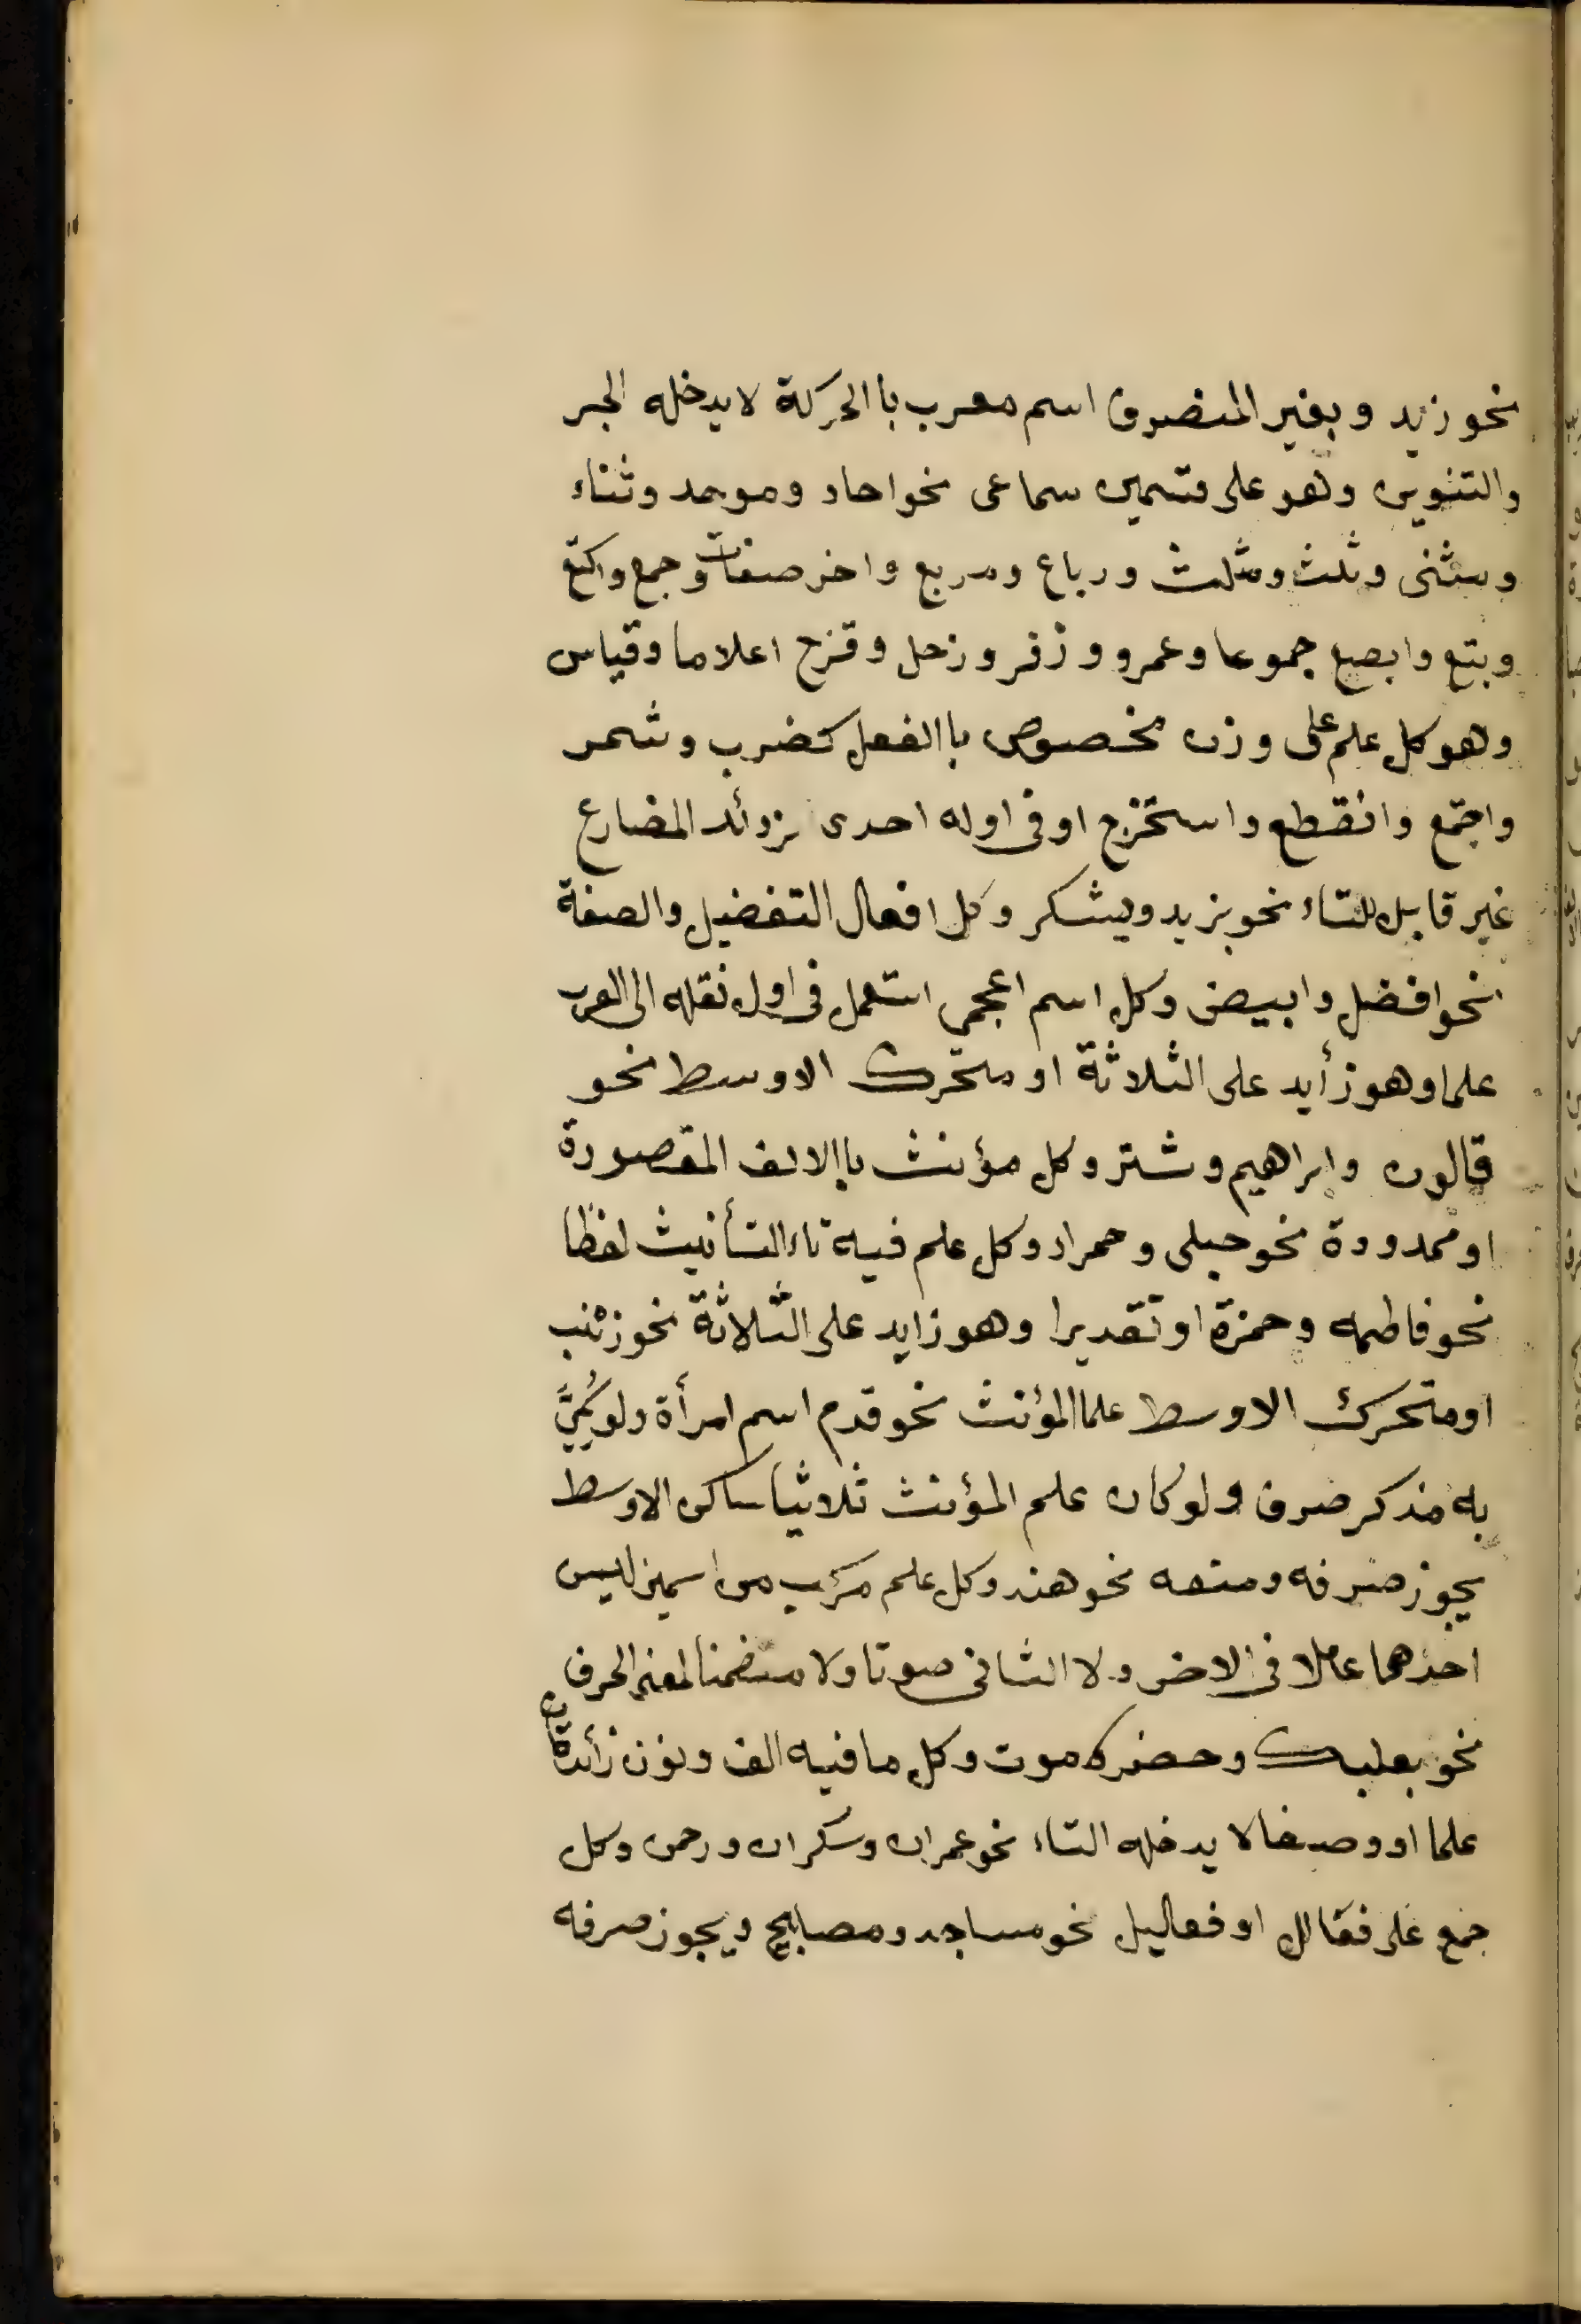 نحو زيد وبغير المنصرف اسم معرب باالحركة لا يدخله الجر
والتنوين وهو على قسمين سماعى نحو احاد وموحد وثناء
ومثنى وثلث ومثلث ورباع ومربع واخر صفات وجمع واكتع
وبتع وابصع جموعا وعمرو وزفر وزحل وقزح اعلاما وقياس
وهو كل علم على وزن مخصوص باالفعل كضرب وشمر
واجتمع وانقطع واستخرج او فى اوله احدى زوائد المضارع
غير قابل للتاء نحو يزيد ويشكر وكل افعال التفضيل والصفة
نحو افضل وابيض وكل اسم اعجمى استعمل فى اول نقله الى العرب
علما وهو زأيد على الثلاثة او متحرك الاوسط نحو
قالون وابراهيم وشتر وكل مؤنث باالالف المقصورة
او ممدودة نحو حبلى وحمراء وكل علم فيه تاء التأنيث لفظا
نحو فاطمه وحمزة او تقديرا وهو زايد على الثلاثة نحو زينب
او متحرك الاوسط علما المؤنث نحو قدم اسم امرأة ولو سُمِّيَ
به مذكر صرف ولو كان علم المؤنث ثلاثيا ساكن الاوسط
يجوز صرفه ومنعه نحو هند وكل علم مركب من اسمين ليس
احدهما عاملا فى الاخر ولا الثانى صوتا ولا متضمنا لمعنى الحرف
نحو بعلبك وحضره موت وكل ما فيه الف ونون زائدتان
علما او وصفا لا يدخله التاء نحو عمران وسكران ورحمن وكل
جمع على فعالل او فعاليل نحو مساجد ومصابيح ويجوز صرفه